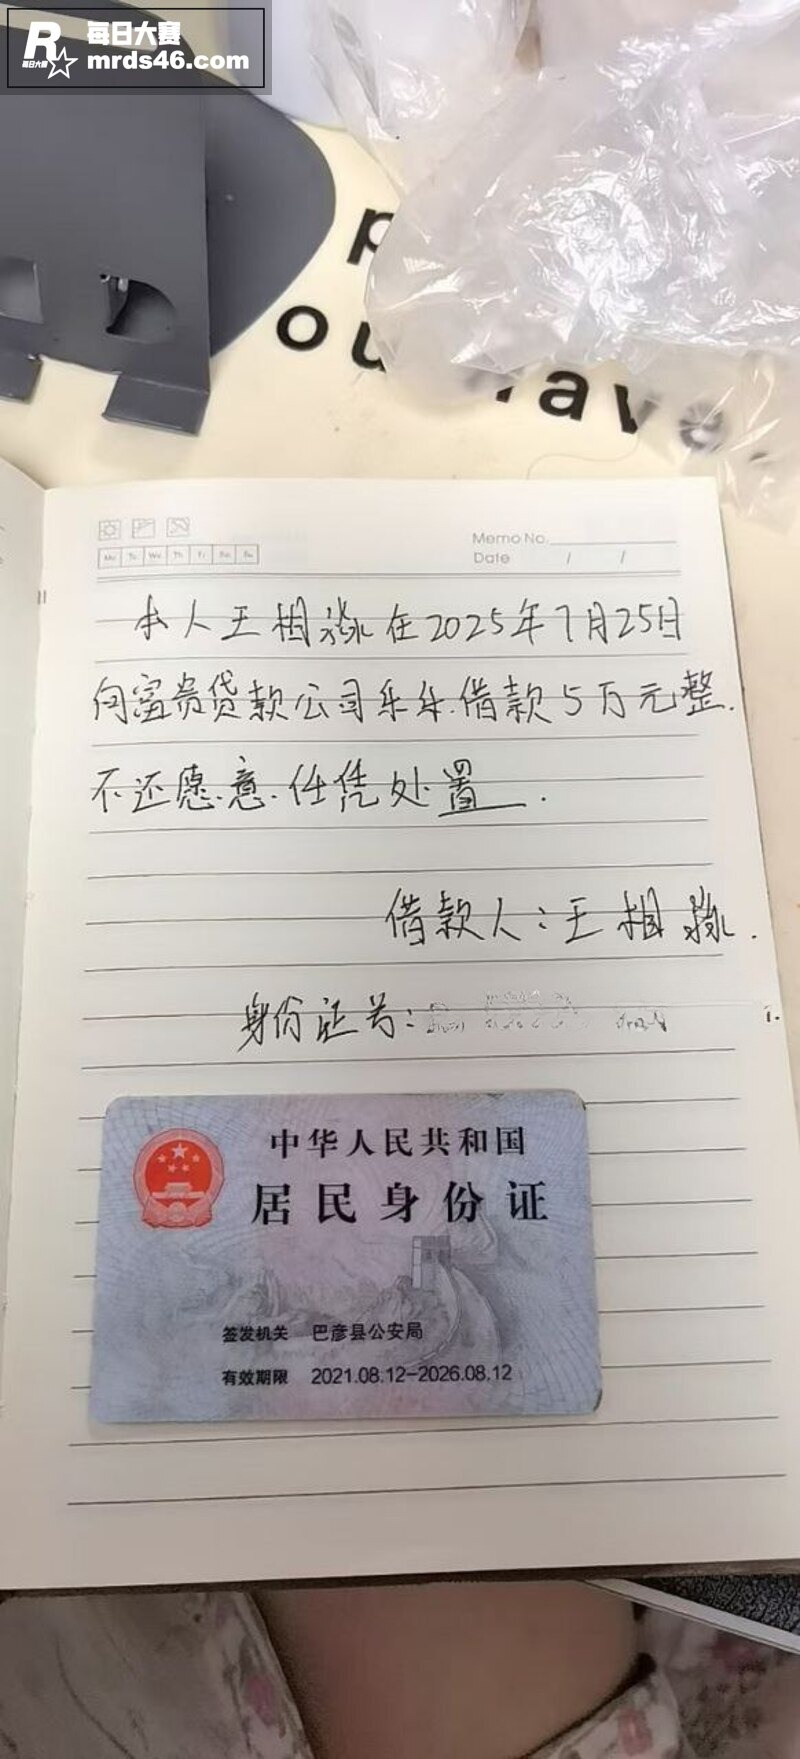 R 每日大赛
每日大赛 mrds46.com
p
ou have
Memo No.
Date / /
Mo Tu We Th Fr Sa Su
本人王相淼在2025年7月25日
向富贵贷款公司乐乐.借款5万元整.
不还愿意.任凭处置.
借款人:王相淼.
身份证号:
中华人民共和国
居民身份证
签发机关 巴彦县公安局
有效期限 2021.08.12-2026.08.12